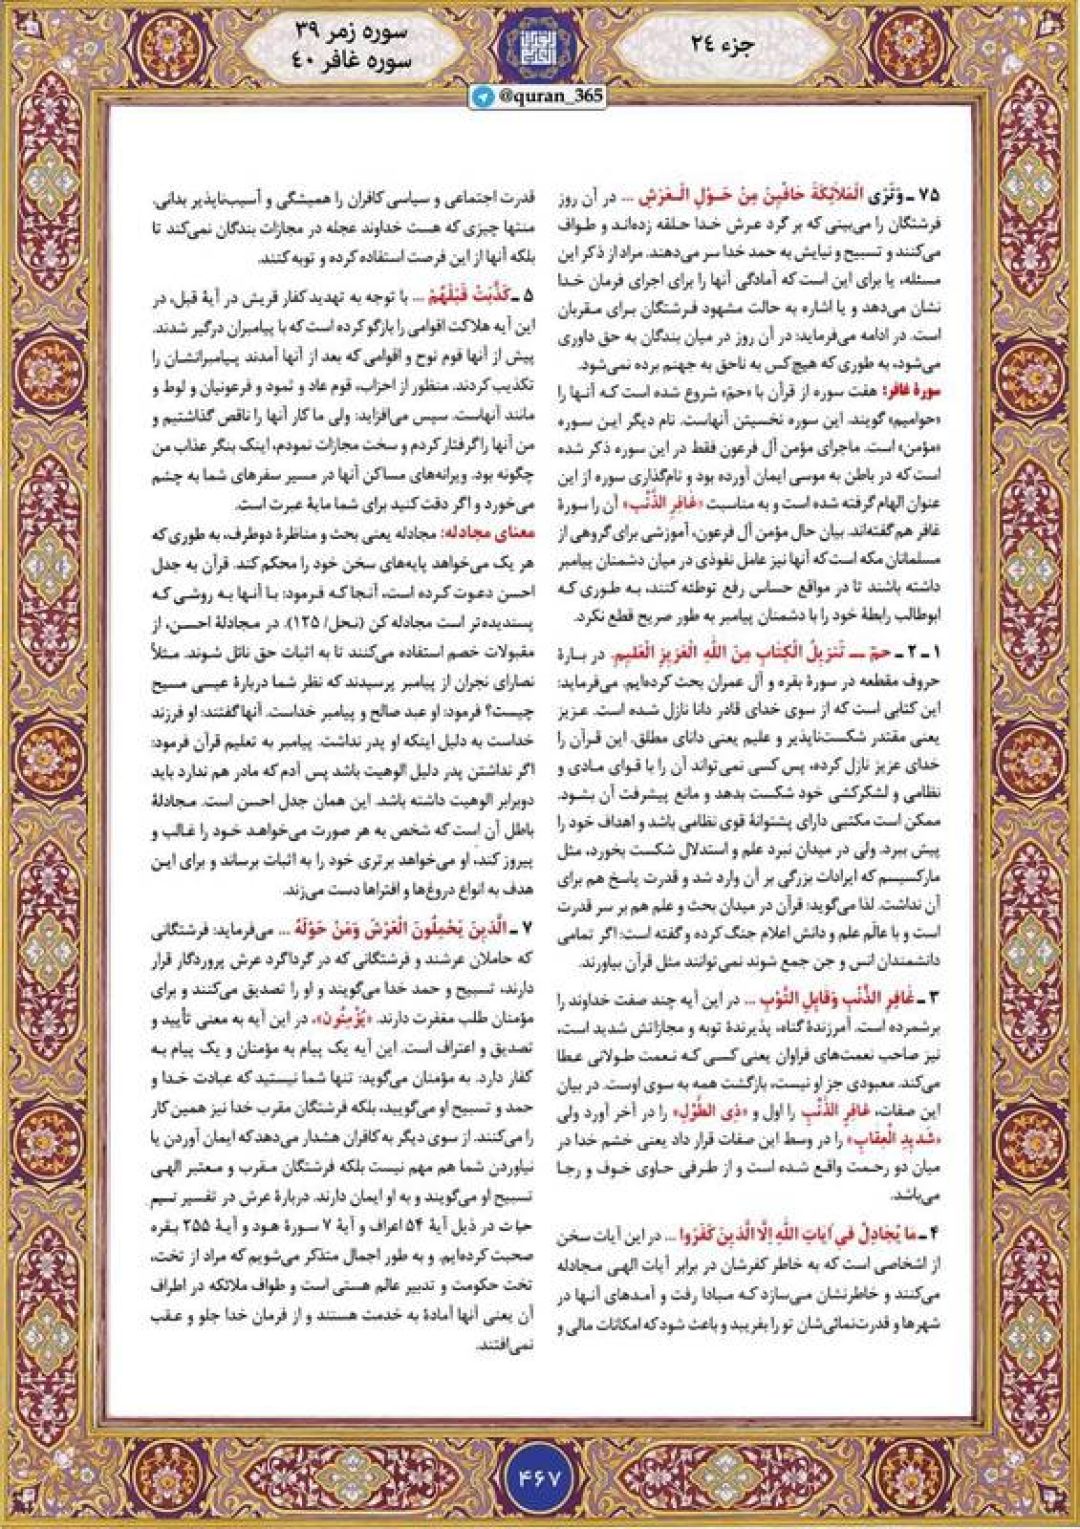 جزء ۲۴
سوره زمر ۳۹
سوره غافر ۴۰
@quran_365
۷۵ ـ وَتَرَی الْمَلَائِکَةَ حَافِّینَ مِنْ حَوْلِ الْعَرْشِ ... در آن روز
فرشتگان را می‌بینی که بر گرد عرش خدا حلقه زده‌اند و طواف
می‌کنند و تسبیح و نیایش به حمد خدا سر می‌دهند. مراد از ذکر این
مسئله، یا برای این است که آمادگی آنها را برای اجرای فرمان خدا
نشان می‌دهد و یا اشاره به حالت مشهود فرشتگان برای مقربان
است. در ادامه می‌فرماید: در آن روز در میان بندگان به حق داوری
می‌شود، به طوری که هیچ کس به ناحق به جهنم برده نمی‌شود.
سورهٔ غافر: هفت سوره از قرآن با «حم» شروع شده است که آنها را
«حوامیم» گویند. این سوره نخستین آنهاست. نام دیگر این سوره
«مؤمن» است. ماجرای مؤمن آل فرعون فقط در این سوره ذکر شده
است که در باطن به موسی ایمان آورده بود و نام‌گذاری سوره از این
عنوان الهام گرفته شده است و به مناسبت «غَافِرِ الذَّنْبِ» آن را سورهٔ
غافر هم گفته‌اند. بیان حال مؤمن آل فرعون، آموزشی برای گروهی از
مسلمانان مکه است که آنها نیز عامل نفوذی در میان دشمنان پیامبر
داشته باشند تا در مواقع حساس رفع توطئه کنند، به طوری که
ابوطالب رابطهٔ خود را با دشمنان پیامبر به طور صریح قطع نکرد.
۱ ـ ۲ ـ حم ـ تَنْزِیلُ الْکِتَابِ مِنَ اللهِ الْعَزِیزِ الْعَلِیمِ. در بارهٔ
حروف مقطعه در سورهٔ بقره و آل عمران بحث کرده‌ایم. می‌فرماید:
این کتابی است که از سوی خدای قادر دانا نازل شده است. عزیز
یعنی مقتدر شکست‌ناپذیر و علیم یعنی دانای مطلق. این قرآن را
خدای عزیز نازل کرده، پس کسی نمی‌تواند آن را با قوای مادی و
نظامی و لشکرکشی خود شکست بدهد و مانع پیشرفت آن بشود.
ممکن است مکتبی دارای پشتوانهٔ قوی نظامی باشد و اهداف خود را
پیش ببرد. ولی در میدان نبرد علم و استدلال شکست بخورد، مثل
مارکسیسم که ایرادات بزرگی بر آن وارد شد و قدرت پاسخ هم برای
آن نداشت. لذا می‌گوید: قرآن در میدان بحث و علم هم بر سر قدرت
است و با عالَم علم و دانش اعلام جنگ کرده و گفته است: اگر تمامی
دانشمندان انس و جن جمع شوند نمی‌توانند مثل قرآن بیاورند.
۳ ـ غَافِرِ الذَّنْبِ وَقَابِلِ التَّوْبِ ... در این آیه چند صفت خداوند را
برشمرده است. آمرزندهٔ گناه، پذیرندهٔ توبه و مجازاتش شدید است،
نیز صاحب نعمت‌های فراوان یعنی کسی که نعمت طولانی عطا
می‌کند. معبودی جز او نیست، بازگشت همه به سوی اوست. در بیان
این صفات، غَافِرِ الذَّنْبِ را اول و «ذِی الطَّوْلِ» را در آخر آورد ولی
«شَدِیدِ الْعِقَابِ» را در وسط این صفات قرار داد یعنی خشم خدا در
میان دو رحمت واقع شده است و از طرفی حاوی خوف و رجا
می‌باشد.
۴ ـ مَا یُجَادِلُ فِی آیَاتِ اللهِ إِلَّا الَّذِینَ کَفَرُوا ... در این آیات سخن
از اشخاصی است که به خاطر کفرشان در برابر آیات الهی مجادله
می‌کنند و خاطرنشان می‌سازد که مبادا رفت و آمدهای آنها در
شهرها و قدرت‌نمائی‌شان تو را بفریبد و باعث شود که امکانات مالی و
قدرت اجتماعی و سیاسی کافران را همیشگی و آسیب‌ناپذیر بدانی.
منتها چیزی که هست خداوند عجله در مجازات بندگان نمی‌کند تا
بلکه آنها از این فرصت استفاده کرده و توبه کنند.
۵ ـ کَذَّبَتْ قَبْلَهُمْ ... با توجه به تهدید کفار قریش در آیهٔ قبل، در
این آیه هلاکت اقوامی را بازگو کرده است که با پیامبران درگیر شدند.
پیش از آنها قوم نوح و اقوامی که بعد از آنها آمدند پیامبرانشان را
تکذیب کردند. منظور از احزاب، قوم عاد و ثمود و فرعونیان و لوط و
مانند آنهاست. سپس می‌افزاید: ولی ما کار آنها را ناقص گذاشتیم و
من آنها را گرفتار کردم و سخت مجازات نمودم، اینک بنگر عذاب من
چگونه بود. ویرانه‌های مساکن آنها در مسیر سفرهای شما به چشم
می‌خورد و اگر دقت کنید برای شما مایهٔ عبرت است.
معنای مجادله: مجادله یعنی بحث و مناظرهٔ دوطرف، به طوری که
هر یک می‌خواهد پایه‌های سخن خود را محکم کند. قرآن به جدل
احسن دعوت کرده است، آنجا که فرمود: با آنها به روشی که
پسندیده‌تر است مجادله کن (نحل/ ۱۲۵). در مجادلهٔ احسن، از
مقبولات خصم استفاده می‌کنند تا به اثبات حق نائل شوند. مثلاً
نصارای نجران از پیامبر پرسیدند که نظر شما دربارهٔ عیسی مسیح
چیست؟ فرمود: او عبد صالح و پیامبر خداست. آنها گفتند: او فرزند
خداست به دلیل اینکه او پدر نداشت. پیامبر به تعلیم قرآن فرمود:
اگر نداشتن پدر دلیل الوهیت باشد پس آدم که مادر هم ندارد باید
دوبرابر الوهیت داشته باشد. این همان جدل احسن است. مجادلهٔ
باطل آن است که شخص به هر صورت می‌خواهد خود را غالب و
پیروز کند، او می‌خواهد برتری خود را به اثبات برساند و برای این
هدف به انواع دروغ‌ها و افتراها دست می‌زند.
۷ ـ الَّذِینَ یَحْمِلُونَ الْعَرْشَ وَمَنْ حَوْلَهُ ... می‌فرماید: فرشتگانی
که حاملان عرشند و فرشتگانی که در گرداگرد عرش پروردگار قرار
دارند، تسبیح و حمد خدا می‌گویند و او را تصدیق می‌کنند و برای
مؤمنان طلب مغفرت دارند. «یُؤْمِنُونَ»، در این آیه به معنی تأیید و
تصدیق و اعتراف است. این آیه یک پیام به مؤمنان و یک پیام به
کفار دارد. به مؤمنان می‌گوید: تنها شما نیستید که عبادت خدا و
حمد و تسبیح او می‌گویید، بلکه فرشتگان مقرب خدا نیز همین کار
را می‌کنند. از سوی دیگر به کافران هشدار می‌دهد که ایمان آوردن یا
نیاوردن شما هم مهم نیست بلکه فرشتگان مقرب و معتبر الهی
تسبیح او می‌گویند و به او ایمان دارند. دربارهٔ عرش در تفسیر نسیم
حیات در ذیل آیهٔ ۵۴ اعراف و آیهٔ ۷ سورهٔ هود و آیهٔ ۲۵۵ بقره
صحبت کرده‌ایم. و به طور اجمال متذکر می‌شویم که مراد از تخت،
تخت حکومت و تدبیر عالم هستی است و طواف ملائکه در اطراف
آن یعنی آنها آمادهٔ به خدمت هستند و از فرمان خدا جلو و عقب
نمی‌افتند.
۴۶۷